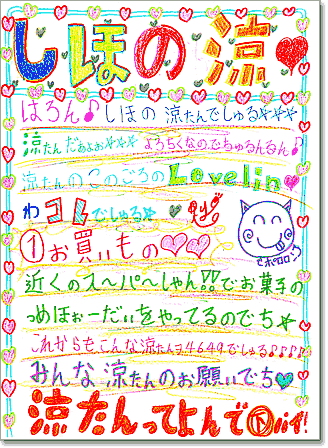 しほの涼❤
はろん♪しほの 涼たんでしゅる☆☆☆
涼たんだぁよぉ☆☆☆ よろちくなのでちゅるんるん♪
涼たんのこのごろのLovelin♥
わコレでしゅる☆
①お買いもの♡♡
近くのス〜パ〜しゃん!!でお菓子
のつめほぉーだいをやってるのでち☆
これからも、こんな涼たんヲ4649でしゅる♪♪♪♪
みんな涼たんのお願いでち♥
涼たんってよんで